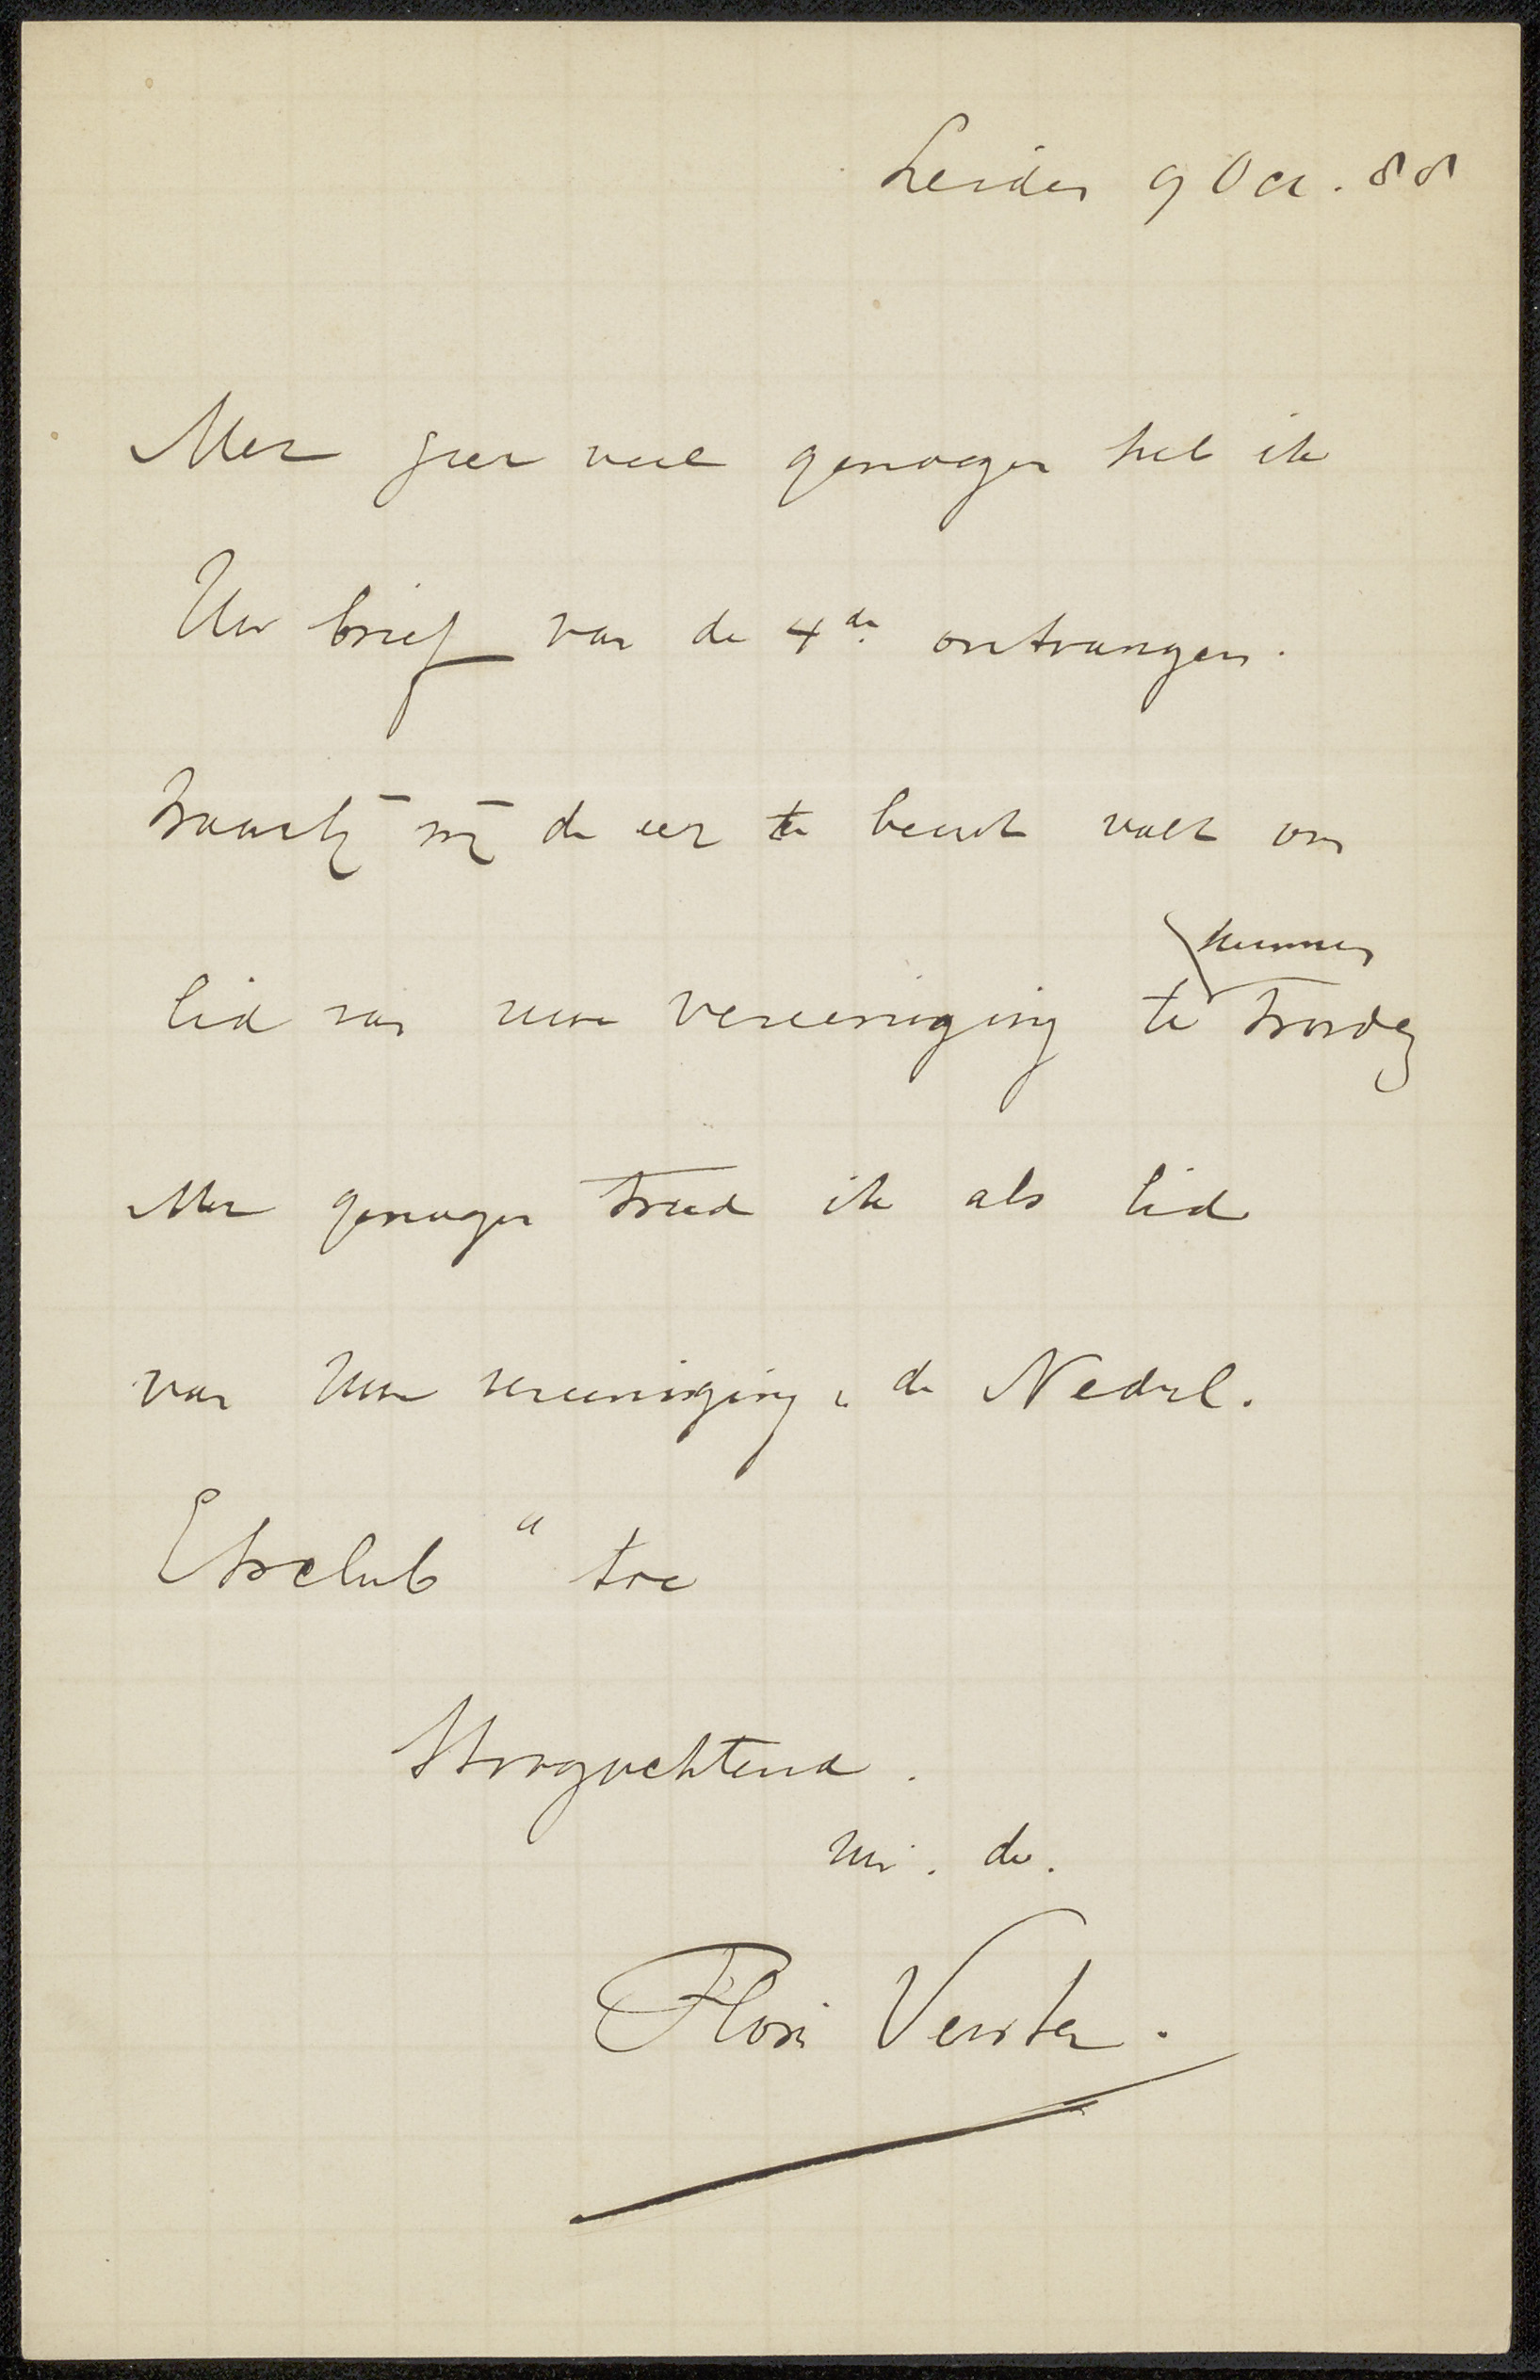 Leiden 9 Oct. 88
Met zeer veel genoegen heb ik
Uw brief van de 4de ontvangen.
waarbij mij de eer te beurt valt om
kunnen
lid van uwe vereeniging te worden
Met genoegen treed ik als lid
van Uwe vereeniging „ de Nederl.
Etsclub " toe
Hoogachtend.
Uw. dr.
Floris Verster.